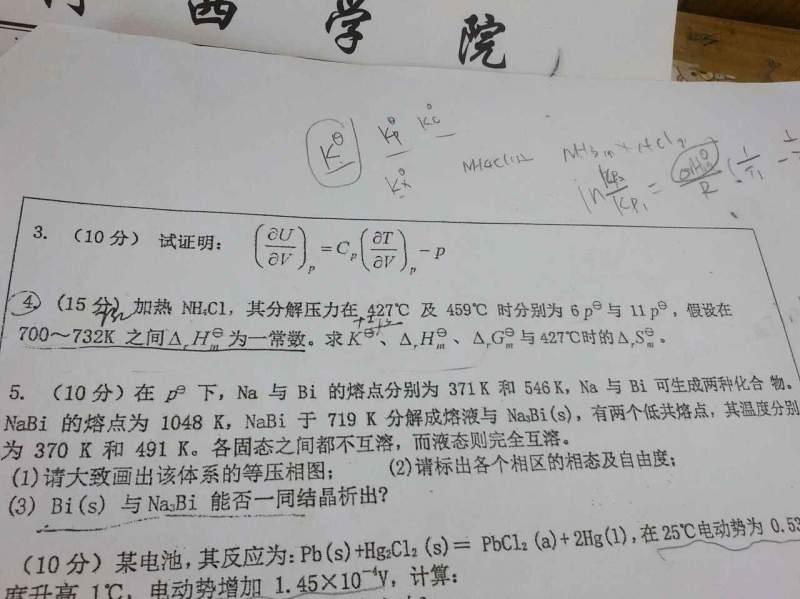 西 学 院
K^θ K_p^θ K_c^θ
K_x^θ
ln Kp₂/Kp₁ =
3. (10分) 试证明: (∂U/∂V)_p = C_p (∂T/∂V)_p − p
4. (15分) 加热 NH₄Cl, 其分解压力在 427℃ 及 459℃ 时分别为 6 p^⊖ 与 11 p^⊖, 假设在
700~732K 之间 Δ_rH_m^⊖ 为一常数。求 K^⊖、Δ_rH_m^⊖、Δ_rG_m^⊖ 与 427℃时的 Δ_rS_m^⊖。
5. (10分) 在 p^⊖ 下, Na 与 Bi 的熔点分别为 371 K 和 546 K, Na 与 Bi 可生成两种化合 物。
NaBi 的熔点为 1048 K, NaBi 于 719 K 分解成熔液与 Na₃Bi(s), 有两个低共熔点, 其温度分别
为 370 K 和 491 K。各固态之间都不互溶, 而液态则完全互溶。
(1)请大致画出该体系的等压相图; (2)请标出各个相区的相态及自由度;
(3) Bi(s) 与 Na₃Bi 能否一同结晶析出?
(10分) 某电池, 其反应为: Pb(s)+Hg₂Cl₂ (s)= PbCl₂ (a)+2Hg(l), 在 25℃电动势为 0.53
度升高 1℃, 电动势增加 1.45×10⁻⁴V, 计算: